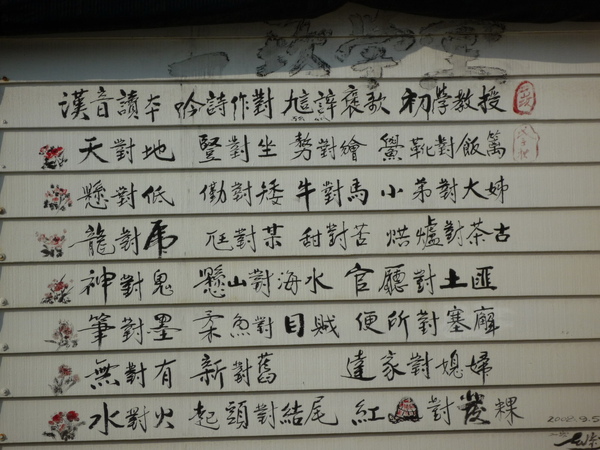 漢音讀本 吟詩作對 褒歌 初學教授
天對地 豎對坐 勢對繪 鱟靴對飯篱
懸對低 勥對矮 牛對馬 小弟對大姊
龍對虎 尪對某 甜對苦 烘爐對茶古
神對鬼 懸山對海水 官廳對土匪
筆對墨 柔魚對目賊 便所對塞廨
無對有 新對舊 達家對媳婦
水對火 起頭對結尾 紅 對發粿